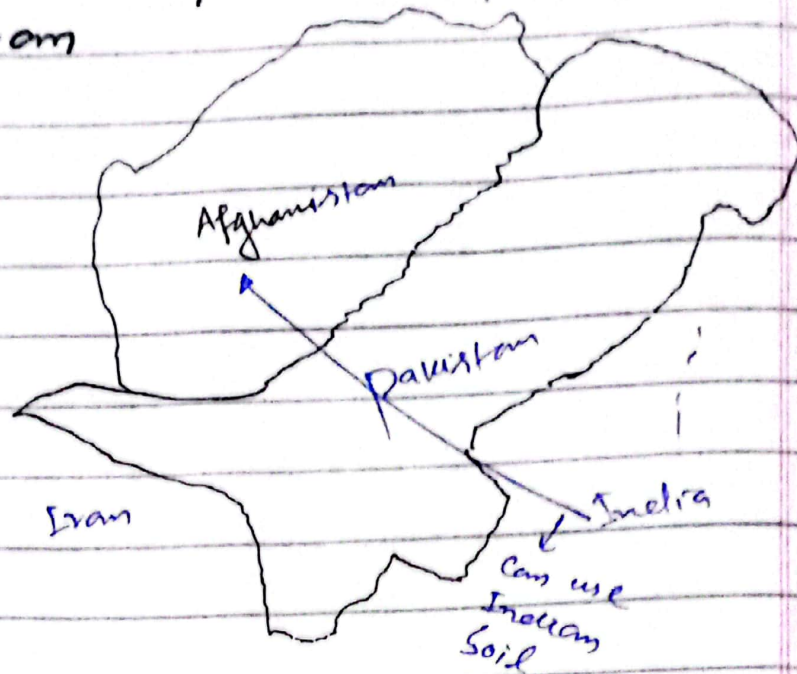 am
Afghanistan
Pakistan
Iran
India
Can use
Indian
Soil